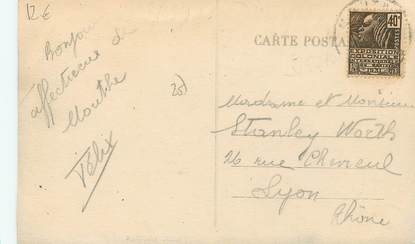 12 €
CARTE POSTALE
40c
POSTES
EXPOSITION
COLONIALE
INTERNATIONALE
PARIS 1931
Bonjour
affectueux de
Mouthe
Félix
20
Madame et Monsieur
Stanley Worth
26 rue Chevreul
Lyon
Rhône